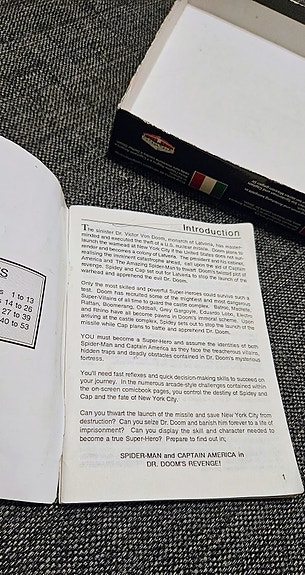 ES
s 1 to 13
s 14 to 26
27 to 39
40 to 53
Introduction
The sinister Dr. Victor Von Doom, monarch of Latveria, has master-
minded and executed the theft of a U.S. nuclear missile. Doom plans to
launch the warhead at New York City if the United States does not sur-
render and becomes a colony of Latveria. The president and his cabinet,
realising the imminent catastrophe ahead, call upon the aid of Captain
America and The Amazing Spider-Man to thwart Doom's twisted plot of
revenge. Spidey and Cap set out for Latveria to stop the launch of the
warhead and apprehend the evil Dr. Doom.
Only the most skilled and powerful Super-Heroes could survive such a
test. Doom has recruited some of the mightiest and most dangerous
Super-Villains of all time to guard the castle complex. Batroc, Machete,
Rattan, Boomerang, Oddball, Grey Gargoyle, Eduardo Lobo, Electro,
and Rhino have all become pawns in Doom's immoral scheme. Upon
arriving at the castle complex, Spidey sets out to stop the launch of the
missile while Cap plans to battle and apprehend Dr. Doom.
YOU must become a Super-Hero and assume the identities of both
Spider-Man and Captain America as they face the treacherous villains,
hidden traps and deadly obstacles contained in Dr. Doom's mysterious
fortress.
You'll need fast reflexes and quick decision-making skills to succeed on
your journey. In the numerous arcade-style challenges contained within
the on-screen comicbook pages, you control the destiny of Spidey and
Cap and the fate of New York City.
Can you thwart the launch of the missile and save New York City from
destruction? Can you seize Dr. Doom and banish him forever to a life of
imprisonment? Can you display the skill and character needed to
become a true Super-Hero? Prepare to find out in;
SPIDER-MAN and CAPTAIN AMERICA in
DR. DOOM'S REVENGE!
1